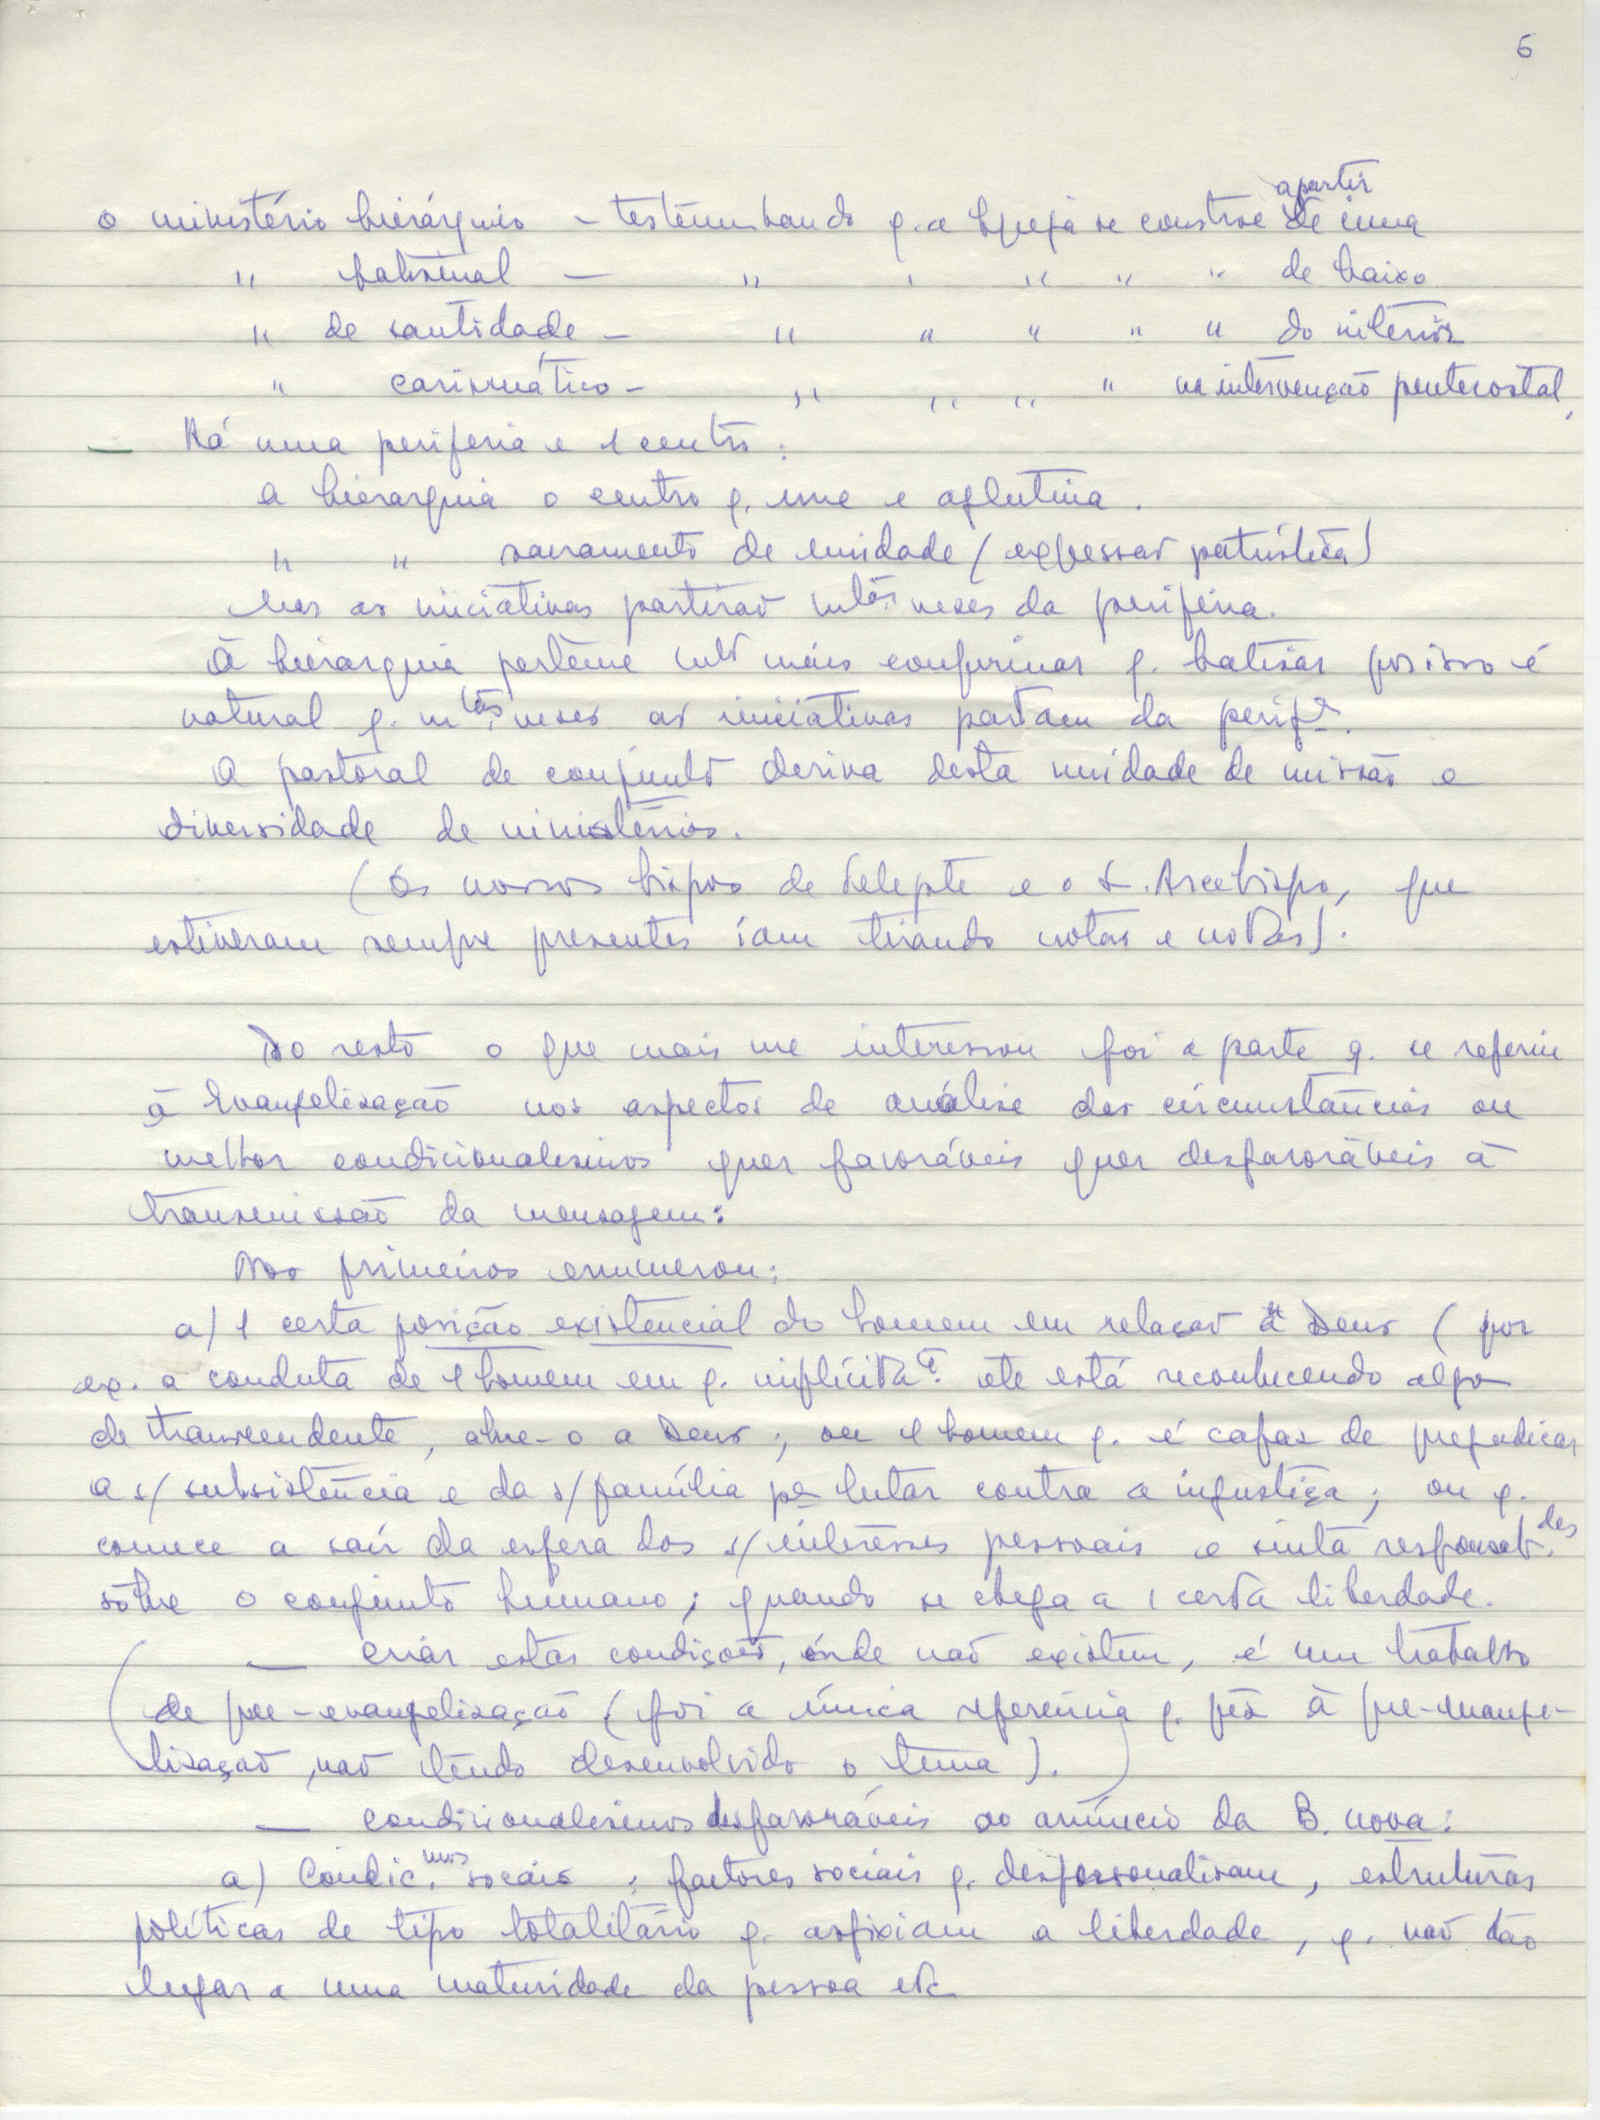 6
apartir
o ministério hierárquico - testemunhando q. a Igreja se constroe de cima
" batismal - " " " " " de baixo
" de santidade - " " " " " do interior
" carismático - " " " " na intervenção pentecostal,
— Há uma periferia e 1 centro:
a hierarquia o centro q. une e aglutina.
" " sacramento de unidade (expressão patrística)
Mas as iniciativas partirão mtas. vezes da periferia.
À hierarquia pertence mto mais confirmar q. batizar por isso é
natural q. mtas. vezes as iniciativas partam da perifª.
A pastoral de conjunto deriva desta unidade de missão e
diversidade de ministérios.
(Os nossos bispos de Salegte e o S. Arcebispo, que
estiveram sempre presentes iam tirando notas e notas).
Do resto o que mais me interessou foi a parte q. se referiu
à Evangelização nos aspectos de análise das circunstâncias ou
melhor condicionalismos quer favoráveis quer desfavoráveis à
transmissão da mensagem:
Nos primeiros enumerou:
a) 1 certa posição existencial do homem em relação a Deus (por
ex. a conduta de 1 homem em q. implícita.e ele está reconhecendo algo
de transcendente, abre-o a Deus; ou 1 homem q. é capaz de prejudicar
a s/ subsistência e da s/ família pª lutar contra a injustiça; ou q.
comece a sair da esfera dos s/ interesses pessoais e sinta responsab.des
sôbre o conjunto humano; quando se chega a 1 certa liberdade.
— criar estas condições, onde não existem, é um trabalho
de pre-evangelização (foi a única referência q. fêz à pre-evange-
lização, não tendo desenvolvido o tema).
— condicionalismos desfavoráveis ao anúncio da B. nova:
a) Condic.mos sociais: factores sociais q. despersonalizam, estruturas
políticas de tipo totalitário q. asfixiam a liberdade, q. não dão
lugar a uma maturidade da pessoa etc